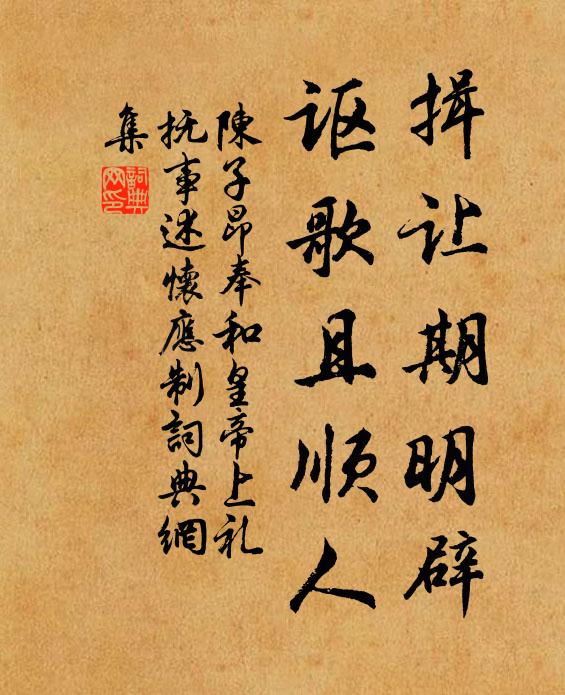 揖让期明辟
讴歌且顺人
陳子昂奉和皇帝上礼
抚事述懷應制詞典網
集
詞典
网印